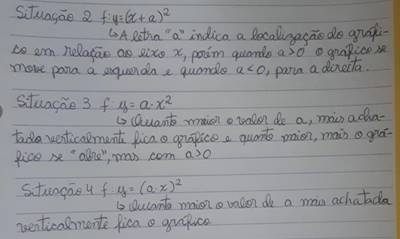 Situação 2 f: y=(x+a)²
↳ A letra "a" indica a localização do gráfi-
co em relação ao eixo x, porém quando a>0 o gráfico se
move para a esquerda e quando a<0, para a direita.
Situação 3 f y = a·x²
↳ Quanto maior o valor de a, mais acha-
tado verticalmente fica o gráfico e quanto maior, mais o grá-
fico se "abre", mas com a>0
Situação 4 f y = (a·x)²
↳ Quanto maior o valor de a mais achatada
verticalmente fica o gráfico